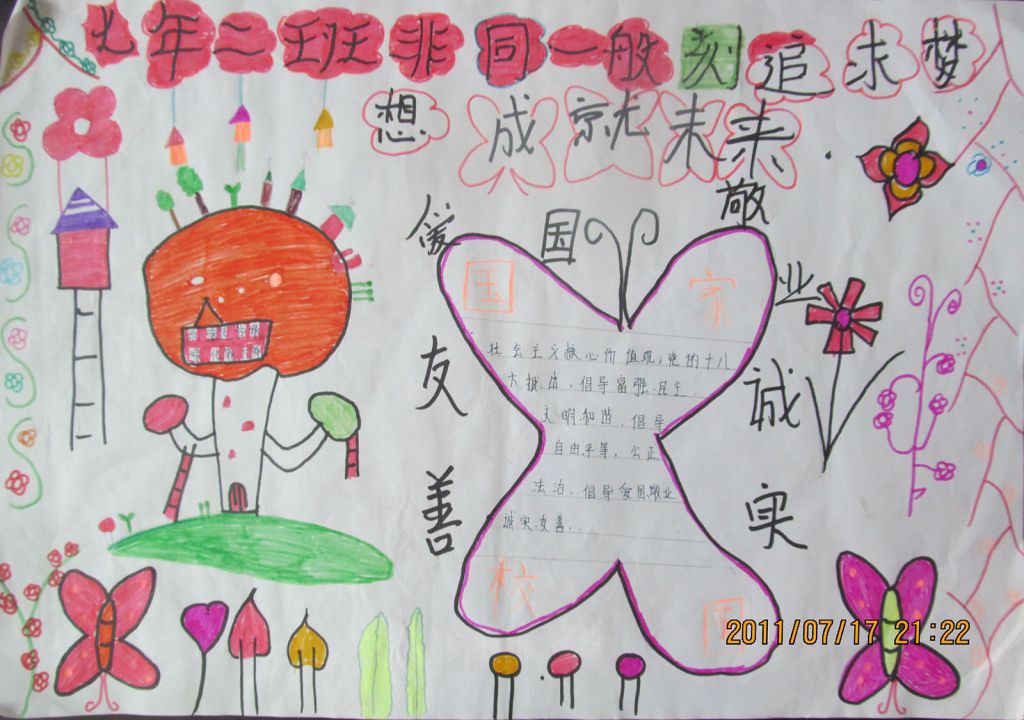 七年二班非同一般刻追求梦
想成就未来.
爱国敬业诚实友善
国家
社会主义核心价值观,党的十八
大提出,倡导富强.民主.
文明和谐,倡导
自由平等,公正
法治、倡导爱国敬业
诚实友善..
校园
2011/07/17 21:22